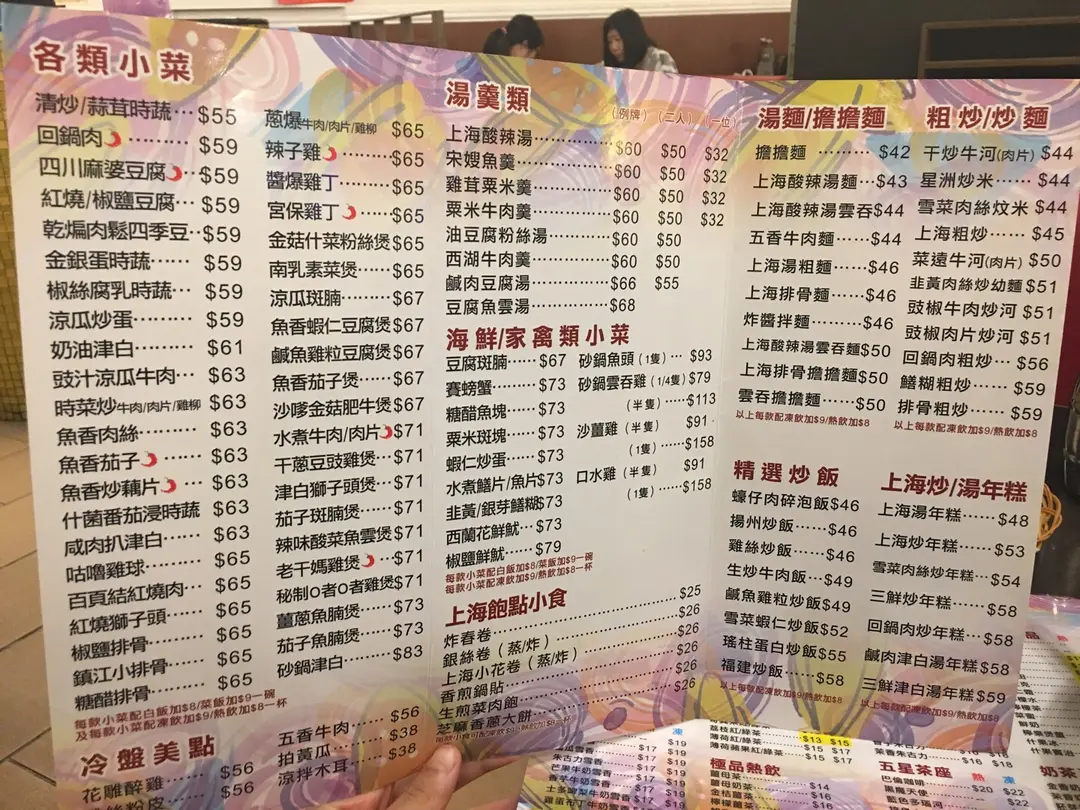 各類小菜
清炒/蒜茸時蔬…$55
回鍋肉………$59
四川麻婆豆腐…$59
紅燒/椒鹽豆腐…$59
乾煸肉鬆四季豆…$59
金銀蛋時蔬……$59
椒絲腐乳時蔬…$59
涼瓜炒蛋………$59
奶油津白………$61
豉汁涼瓜牛肉…$63
時菜炒牛肉/肉片/雞柳 $63
魚香肉絲………$63
魚香茄子……$63
魚香炒藕片…$63
什菌番茄浸時蔬 $63
咸肉扒津白……$63
咕嚕雞球………$65
百頁結紅燒肉…$65
紅燒獅子頭……$65
椒鹽排骨………$65
鎮江小排骨……$65
糖醋排骨………$65
每款小菜配白飯加$8/菜飯加$9一碗
及每款小菜配凍飲加$9/熱飲加$8一杯
蔥爆牛肉/肉片/雞柳 $65
辣子雞………$65
醬爆雞丁………$65
宮保雞丁……$65
金菇什菜粉絲煲$65
南乳素菜煲……$65
涼瓜斑腩………$67
魚香蝦仁豆腐煲$67
鹹魚雞粒豆腐煲$67
魚香茄子煲……$67
沙嗲金菇肥牛煲$67
水煮牛肉/肉片$71
干蔥豆豉雞煲…$71
津白獅子頭煲…$71
茄子斑腩煲……$71
辣味酸菜魚雲煲$71
老干媽雞煲…$71
秘制O者O者雞煲$71
薑蔥魚腩煲……$73
茄子魚腩煲……$73
砂鍋津白………$83
冷盤美點
花雕醉雞……$56
粉皮……$56
五香牛肉…$56
拍黃瓜……$38
涼拌木耳…$38
湯羹類
(例牌) (二人) (一位)
上海酸辣湯………$60 $50 $32
宋嫂魚羹…………$60 $50 $32
雞茸粟米羹………$60 $50 $32
粟米牛肉羹………$60 $50 $32
油豆腐粉絲湯……$60 $50
西湖牛肉羹………$60 $50
鹹肉豆腐湯………$66 $55
豆腐魚雲湯………$68
海鮮/家禽類小菜
豆腐斑腩……$67
賽螃蟹………$73
糖醋魚塊……$73
粟米斑塊……$73
蝦仁炒蛋……$73
水煮鱔片/魚片$73
韭黃/銀芽鱔糊$73
西蘭花鮮魷…$73
椒鹽鮮魷……$79
每款小菜配白飯加$8/菜飯加$9一碗
每款小菜配凍飲加$9/熱飲加$8一杯
砂鍋魚頭(1隻)…$93
砂鍋雲吞雞(1/4隻)$79
(半隻)……$113
沙薑雞(半隻) $91
(1隻)……$158
口水雞(半隻) $91
(1隻)……$158
上海飽點小食
炸春卷………$25
銀絲卷(蒸/炸)………$26
上海小花卷(蒸/炸)………$26
香煎鍋貼………$26
生煎菜肉飽………$26
芝麻香蔥大餅………$26
湯麵/擔擔麵
擔擔麵………$42
上海酸辣湯麵…$43
上海酸辣湯雲吞$44
五香牛肉麵……$44
上海湯粗麵……$46
上海排骨麵……$46
炸醬拌麵………$46
上海酸辣湯雲吞麵$50
上海排骨擔擔麵$50
雲吞擔擔麵……$50
以上每款配凍飲加$9/熱飲加$8
精選炒飯
蠔仔肉碎泡飯$46
揚州炒飯……$46
雞絲炒飯……$46
生炒牛肉飯…$49
鹹魚雞粒炒飯$49
雪菜蝦仁炒飯$52
瑤柱蛋白炒飯$55
福建炒飯……$58
以上每款配凍飲加$9/熱飲加$8
粗炒/炒麵
干炒牛河(肉片)$44
星洲炒米……$44
雪菜肉絲炆米$44
上海粗炒……$45
菜遠牛河(肉片)$50
韭黃肉絲炒幼麵$51
豉椒牛肉炒河 $51
豉椒肉片炒河 $51
回鍋肉粗炒…$56
鱔糊粗炒……$59
排骨粗炒……$59
以上每款配凍飲加$9/熱飲加$8
上海炒/湯年糕
上海湯年糕……$48
上海炒年糕……$53
雪菜肉絲炒年糕…$54
三鮮炒年糕……$58
回鍋肉炒年糕…$58
鹹肉津白湯年糕$58
三鮮津白湯年糕$59
以上每款配凍飲加$9/熱飲加$8
極品熱飲
五星茶座 熱 凍